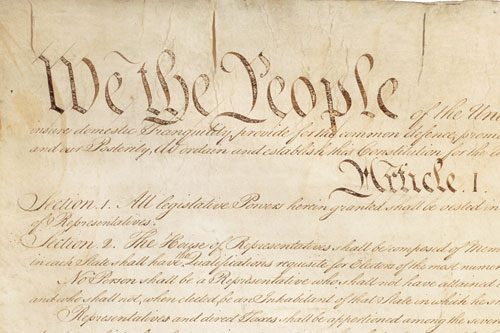 We the People of the Uni
insure domestic Tranquility, provide for the common defence, prom
and our Posterity, do ordain and establish this Constitution for the
Article. I.
Section. 1. All legislative Powers herein granted shall be vested in
of Representatives.
Section. 2. The House of Representatives shall be composed of Mem
in each State shall have the Qualifications requisite for Electors of the most numer
No Person shall be a Representative who shall not have attained
and who shall not, when elected, be an Inhabitant of that State in which he s
Representatives and direct Taxes shall be apportioned among the seve